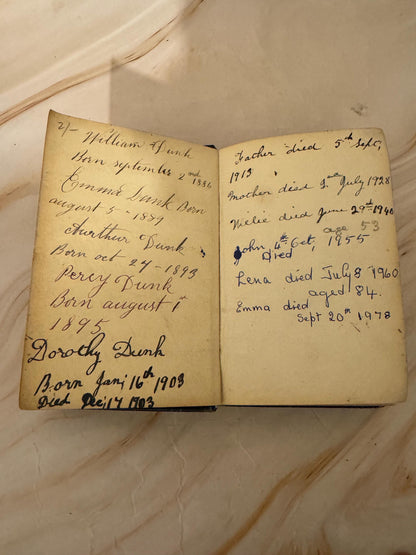 2/-
William Dunk
Born september 2nd 1886
Emma Dunk Born
august 5 - 1889
Aurthur Dunk
Born oct 24 - 1893
Percy Dunk
Born august 1
1895
Dorothy Dunk
Born Jan; 16th 1903
Died Dec; 17 1903
Father died 5th Sept,
1913
Mother died 2nd July 1928
Willie died June 29th 1940
age 53
John, 4th Oct, 1955
Died
Lena died July 8 1960
aged 84.
Emma died
Sept 20th 1978